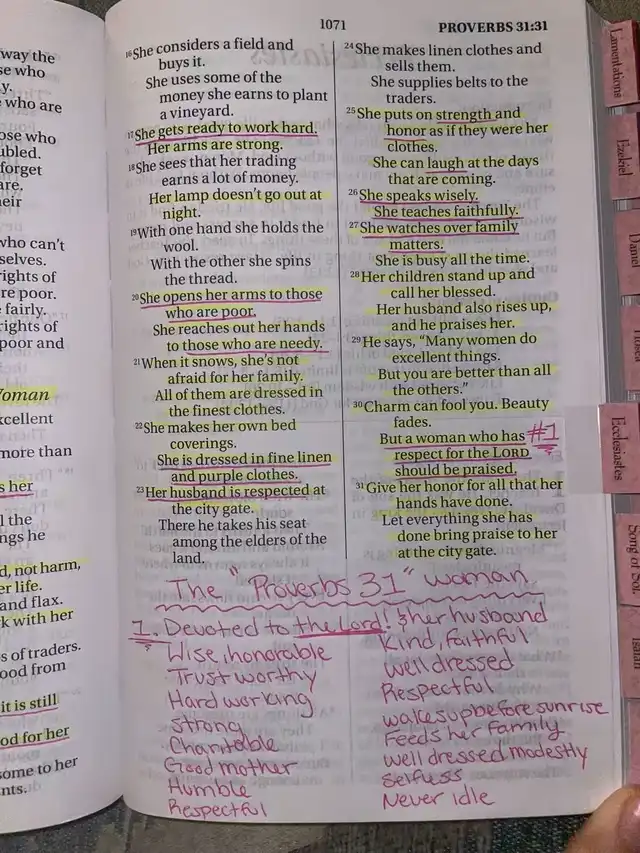 way the
se who
y.
who are
ose who
ubled.
forget
are.
heir
who can't
selves.
rights of
re poor.
e fairly.
rights of
poor and
Woman
xcellent
more than
s her
l the
ngs he
d, not harm,
er life.
and flax.
k with her
s of traders.
ood from
it is still
od for her
ome to her
nts.
1071 PROVERBS 31:31
16 She considers a field and
buys it.
She uses some of the
money she earns to plant
a vineyard.
17 She gets ready to work hard.
Her arms are strong.
18 She sees that her trading
earns a lot of money.
Her lamp doesn't go out at
night.
19 With one hand she holds the
wool.
With the other she spins
the thread.
20 She opens her arms to those
who are poor.
She reaches out her hands
to those who are needy.
21 When it snows, she's not
afraid for her family.
All of them are dressed in
the finest clothes.
22 She makes her own bed
coverings.
She is dressed in fine linen
and purple clothes.
23 Her husband is respected at
the city gate.
There he takes his seat
among the elders of the
land.
24 She makes linen clothes and
sells them.
She supplies belts to the
traders.
25 She puts on strength and
honor as if they were her
clothes.
She can laugh at the days
that are coming.
26 She speaks wisely.
She teaches faithfully.
27 She watches over family
matters.
She is busy all the time.
28 Her children stand up and
call her blessed.
Her husband also rises up,
and he praises her.
29 He says, “Many women do
excellent things.
But you are better than all
the others.”
30 Charm can fool you. Beauty
fades.
But a woman who has #1
respect for the LORD
should be praised.
31 Give her honor for all that her
hands have done.
Let everything she has
done bring praise to her
at the city gate.
The "Proverbs 31" woman
1. Devoted to the Lord! & her husband
Wise, honorable
Trustworthy
Hardworking
Strong
Charitable
Good mother
Humble
Respectful
Kind, faithful
well dressed
Respectful
wakes up before sunrise
Feeds her family
well dressed modestly
selfless
Never idle
Lamentations
Ezekiel
Daniel
Hosea
Ecclesiastes
Song of Sol.
Isaiah